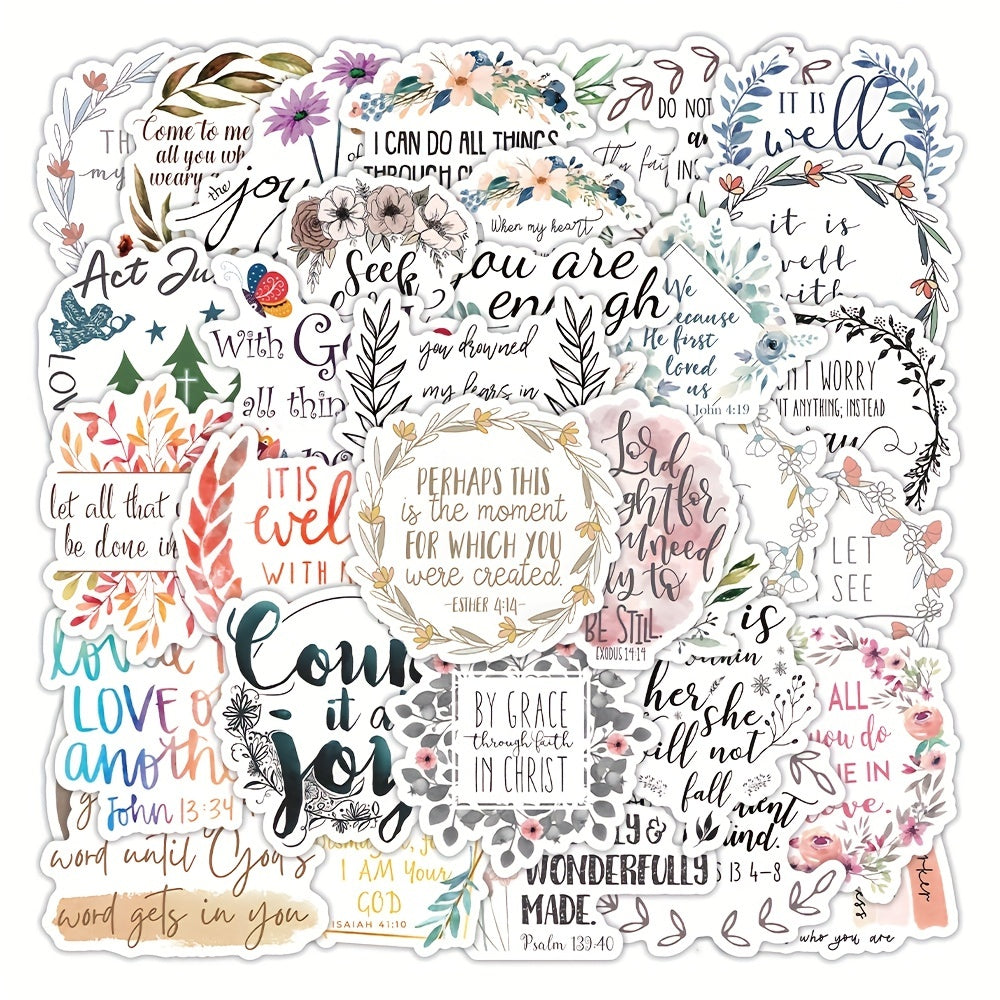 TH
my
Come to me
all you wh
weary a
the joy
of
I CAN DO ALL THINGS
THROUGH C
DO NOT
an
Thy fait
INS
IT IS
well
When my heart
it is
well
with
Act Ju
LOV
Seek
you are
enough
We
because
He first
loved
us
1 John 4:19
With Go
all thin
you drowned
my fears in
N'T WORRY
UT ANYTHING; INSTEAD
ray
let all that
be done in
IT IS
well
WITH M
PERHAPS THIS
is the moment
FOR WHICH YOU
were created.
-ESTHER 4:14-
Lord
ght for
u need
ly to
BE STILL.
EXODUS 14:14
LET
SEE
LOVE O
anoth
John 13:34
Coun
it a
joy
BY GRACE
through faith
IN CHRIST
is
within
her she
will not
fall
ALL
you do
NE IN
love.
word until God's
word gets in you
I AM Your
GOD
ISAIAH 41:10
LY &
WONDERFULLY
MADE.
Psalm 139:40
ind.
S 13 4-8
rker
ess
who you are